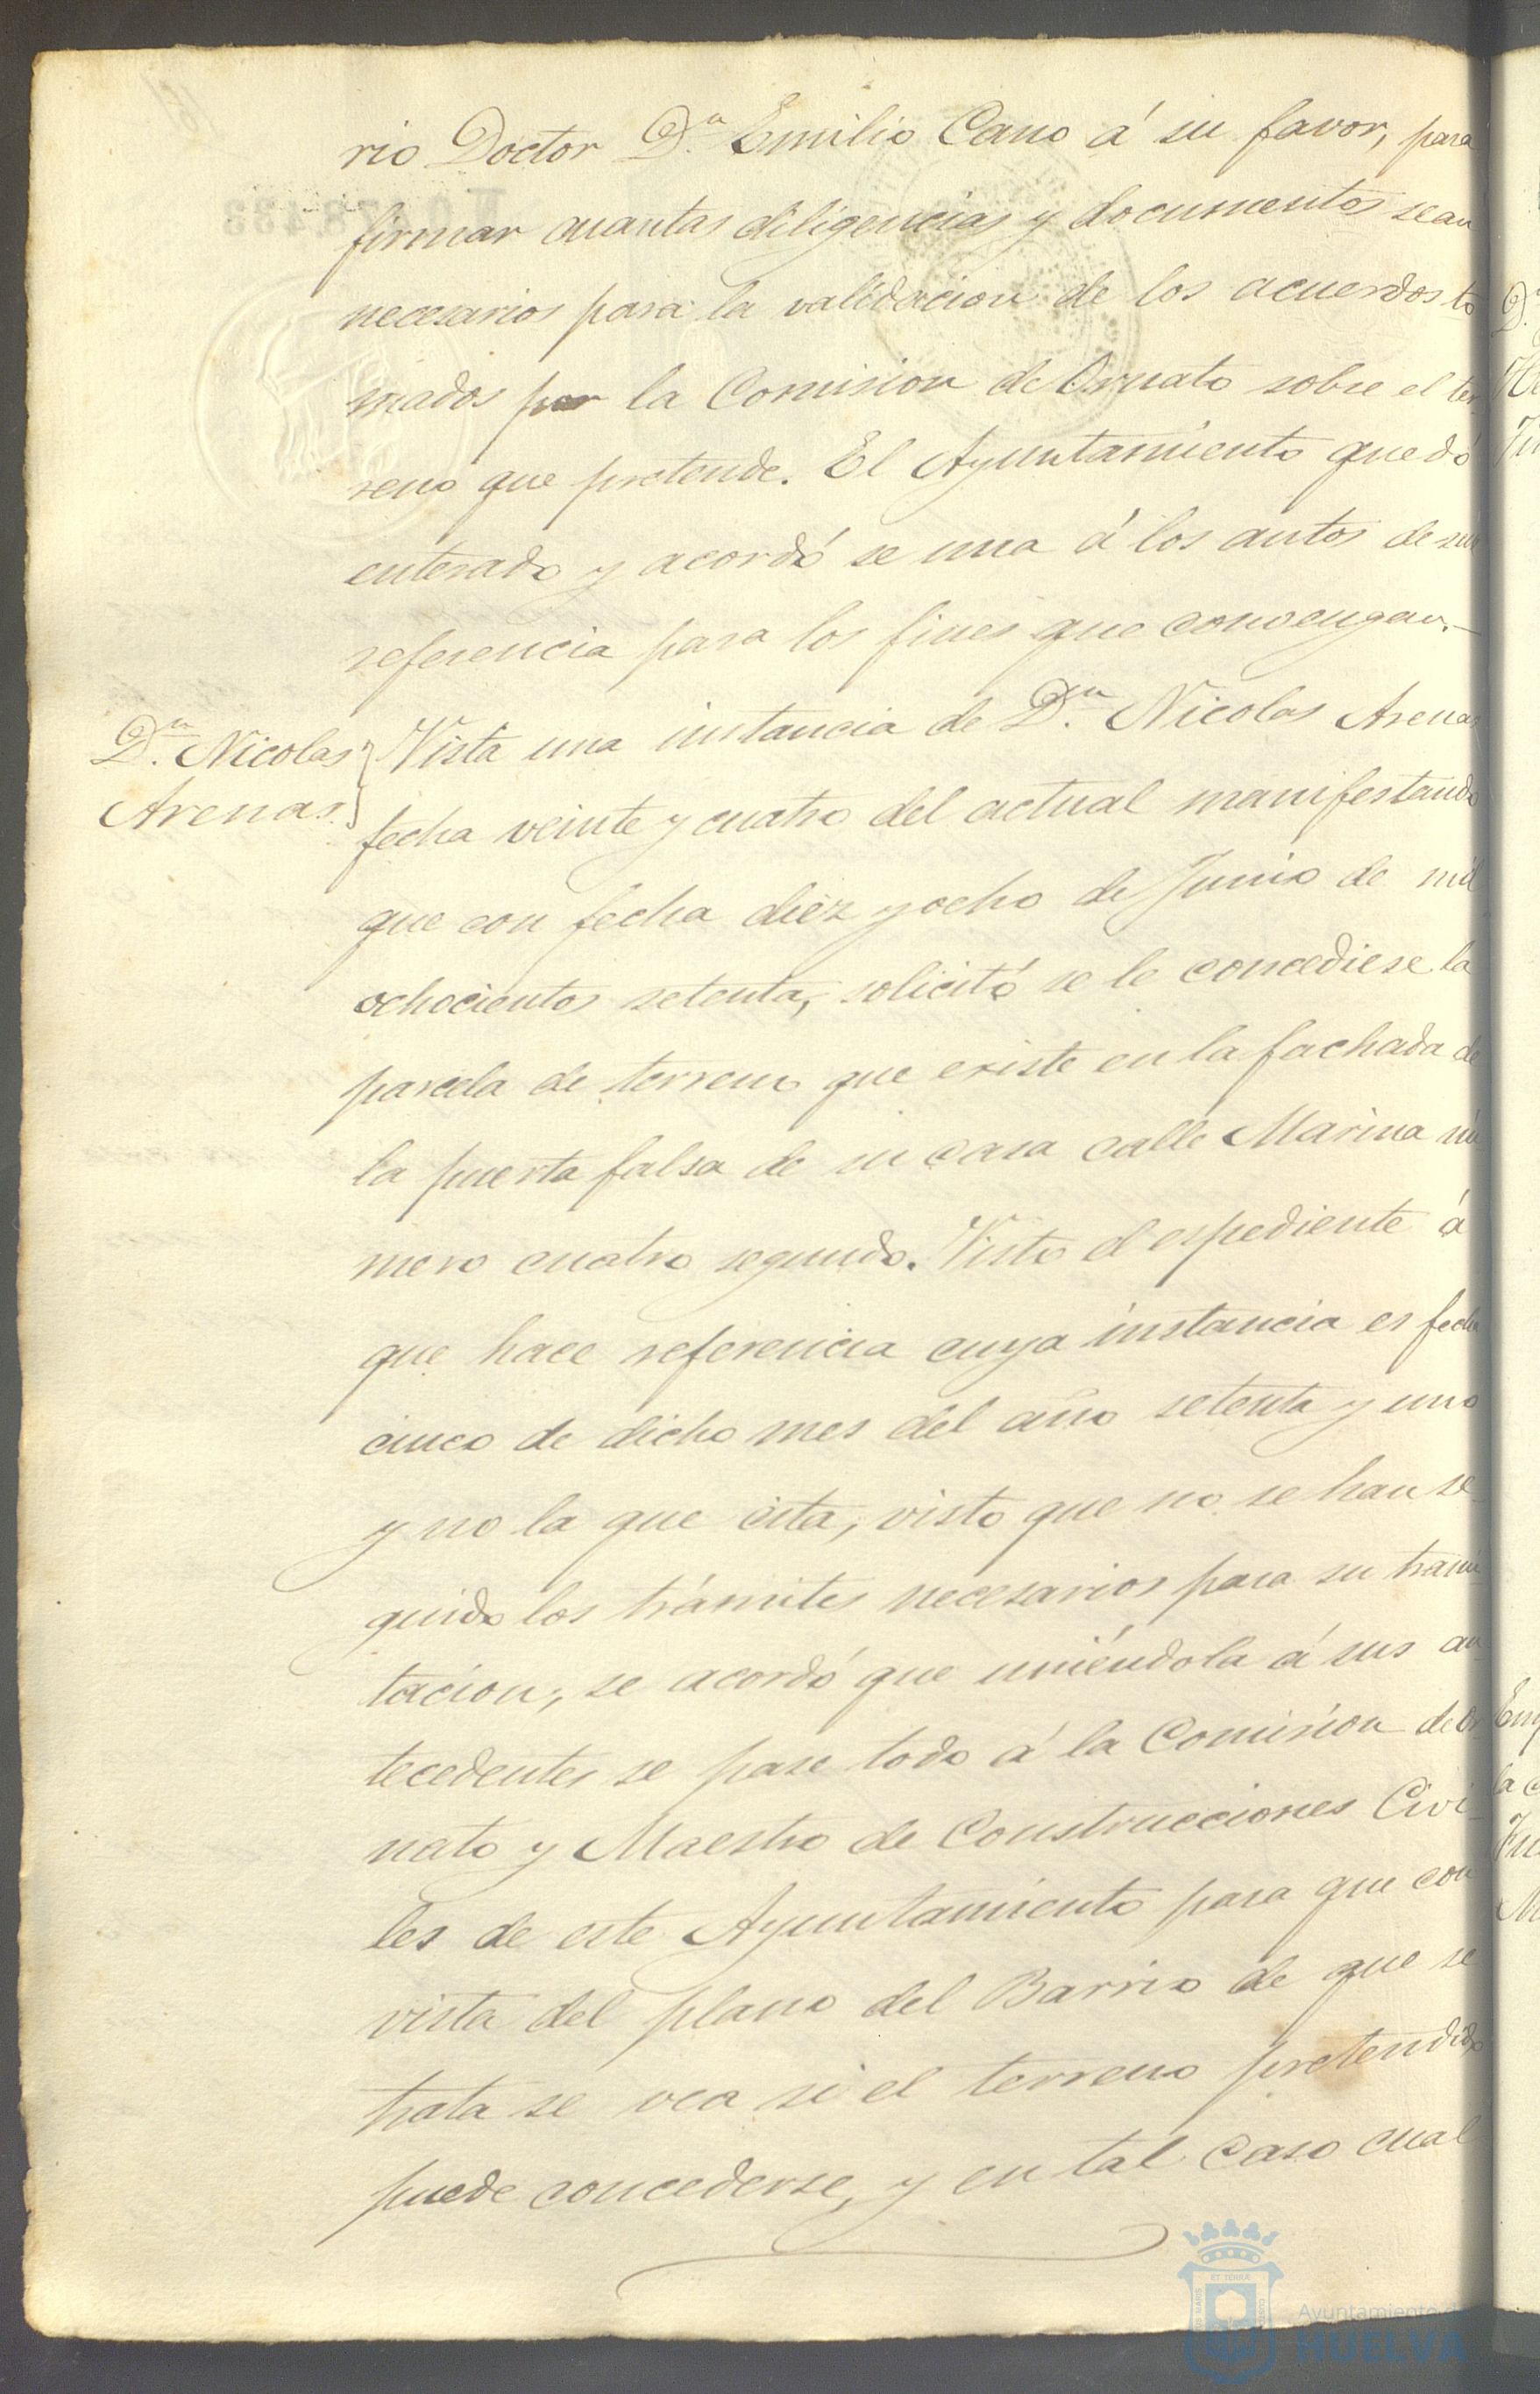 rio Doctor D.n Emilio Cano á su favor, para
firmar cuantas diligencias y documentos sean
necesarios para la validacion de los acuerdos to
mados por la Comision de Ornato sobre el ter
reno que pretende. El Ayuntamiento quedó
enterado y acordó se una á los autos de su
referencia para los fines que convengan.—
D.n Nicolas
Arenas
Vista una instancia de D.n Nicolas Arenas
fecha veinte y cuatro del actual manifestando
que con fecha diez y ocho de Junio de mil
ochocientos setenta, solicitó se le concediese la
parcela de terreno que existe en la fachada de
la puerta falsa de su casa calle Marina nú
mero cuatro segundo. Visto el espediente á
que hace referencia cuya instancia es fecha
cinco de dicho mes del año setenta y uno
y no la que cita, visto que no se han se
guido los trámites necesarios para su trami
tacion, se acordó que uniéndola á sus an
tecedentes se pase todo á la Comision de Or
nato y Maestro de Construcciones Civi
les de este Ayuntamiento para que con
vista del plano del Barrio de que se
trata se vea si el terreno pretendido
puede concederse, y en tal caso cual
Ayuntamiento de
HUELVA